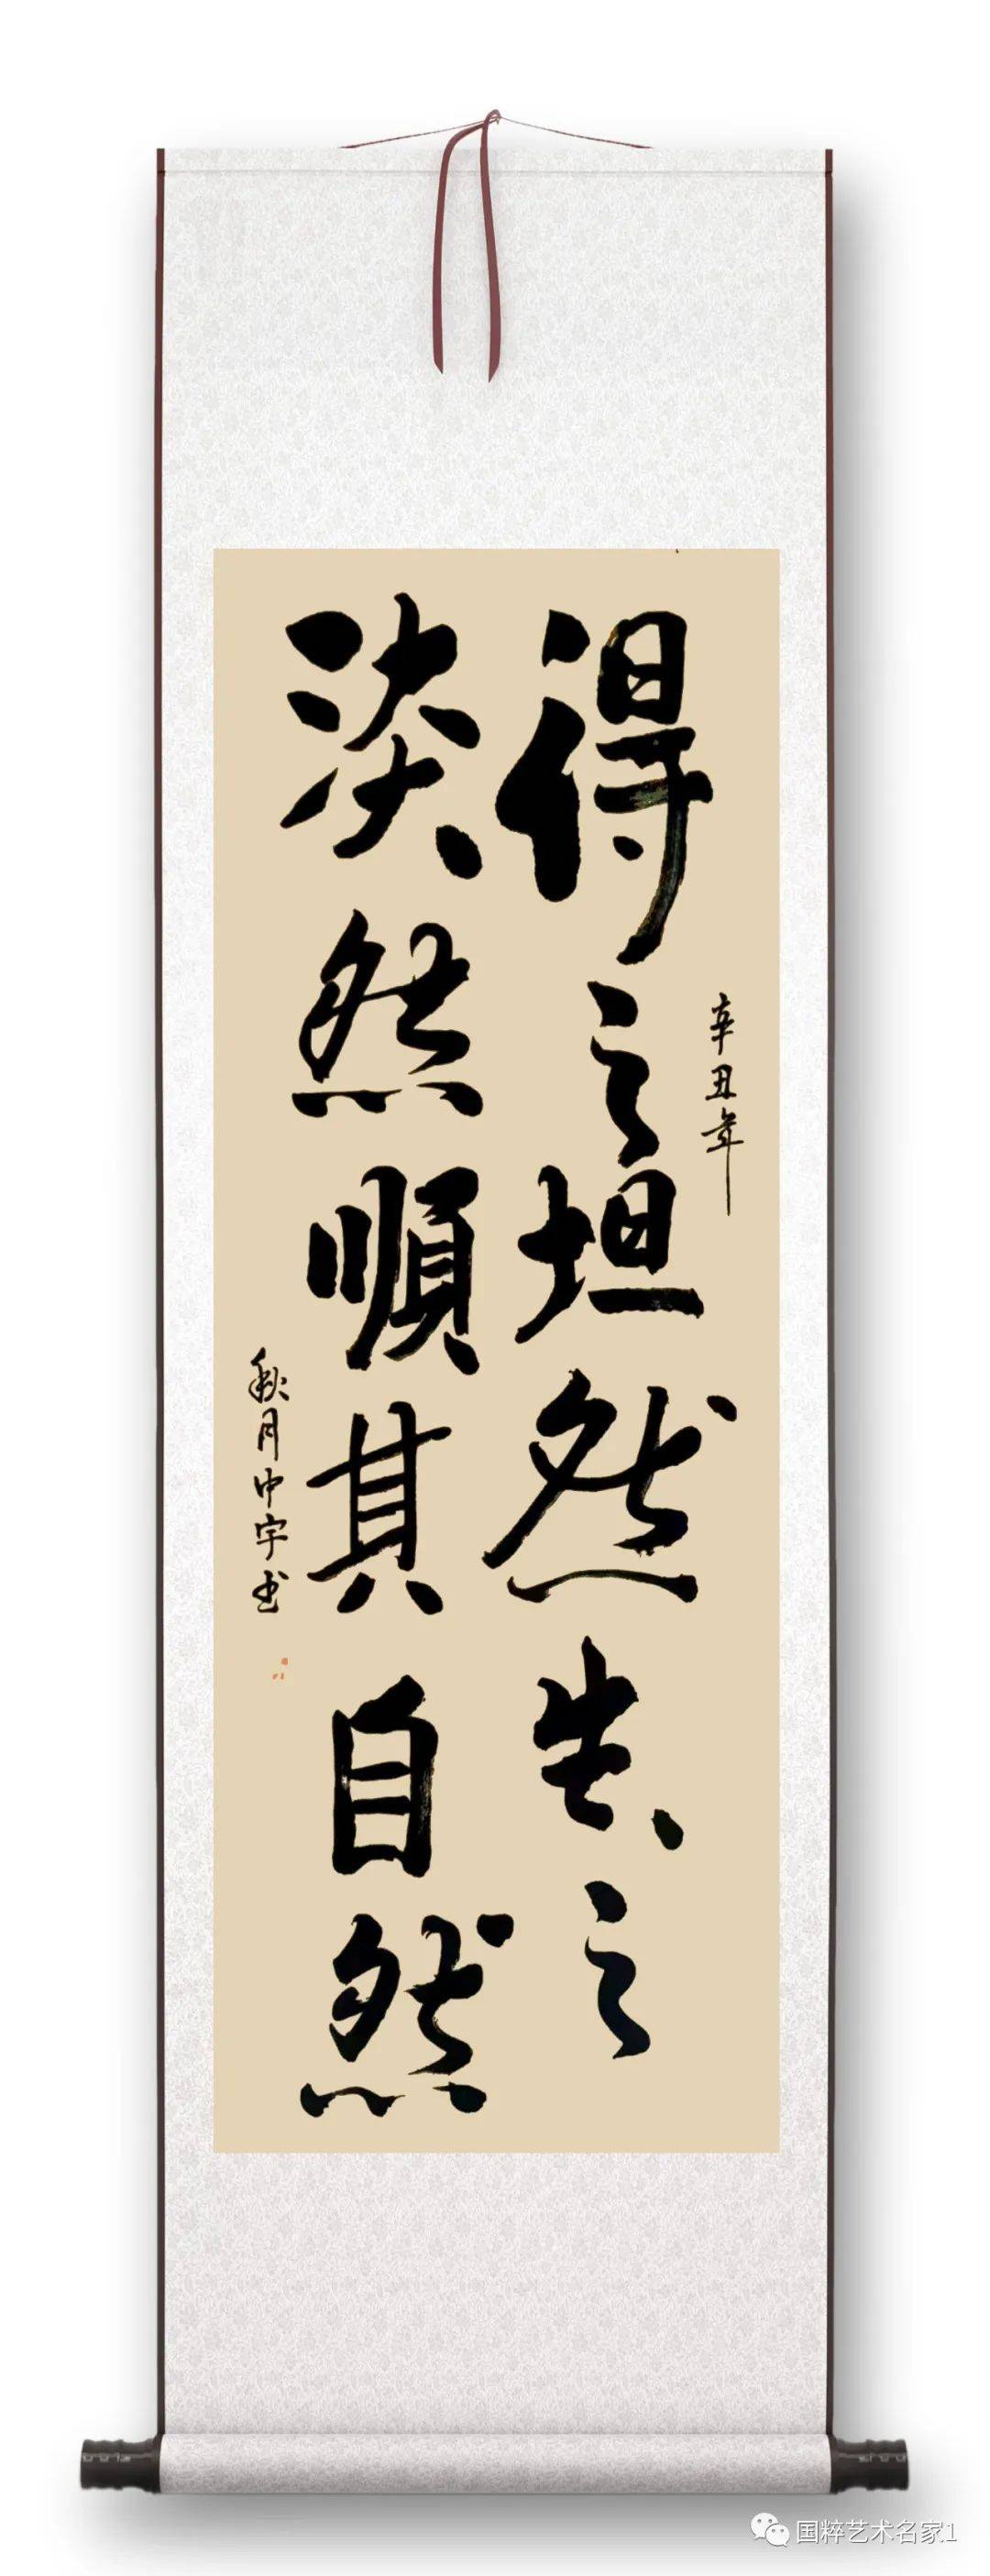 辛丑年
得之坦然失之
淡然順其自然
秋月中宇书
国粹艺术名家1